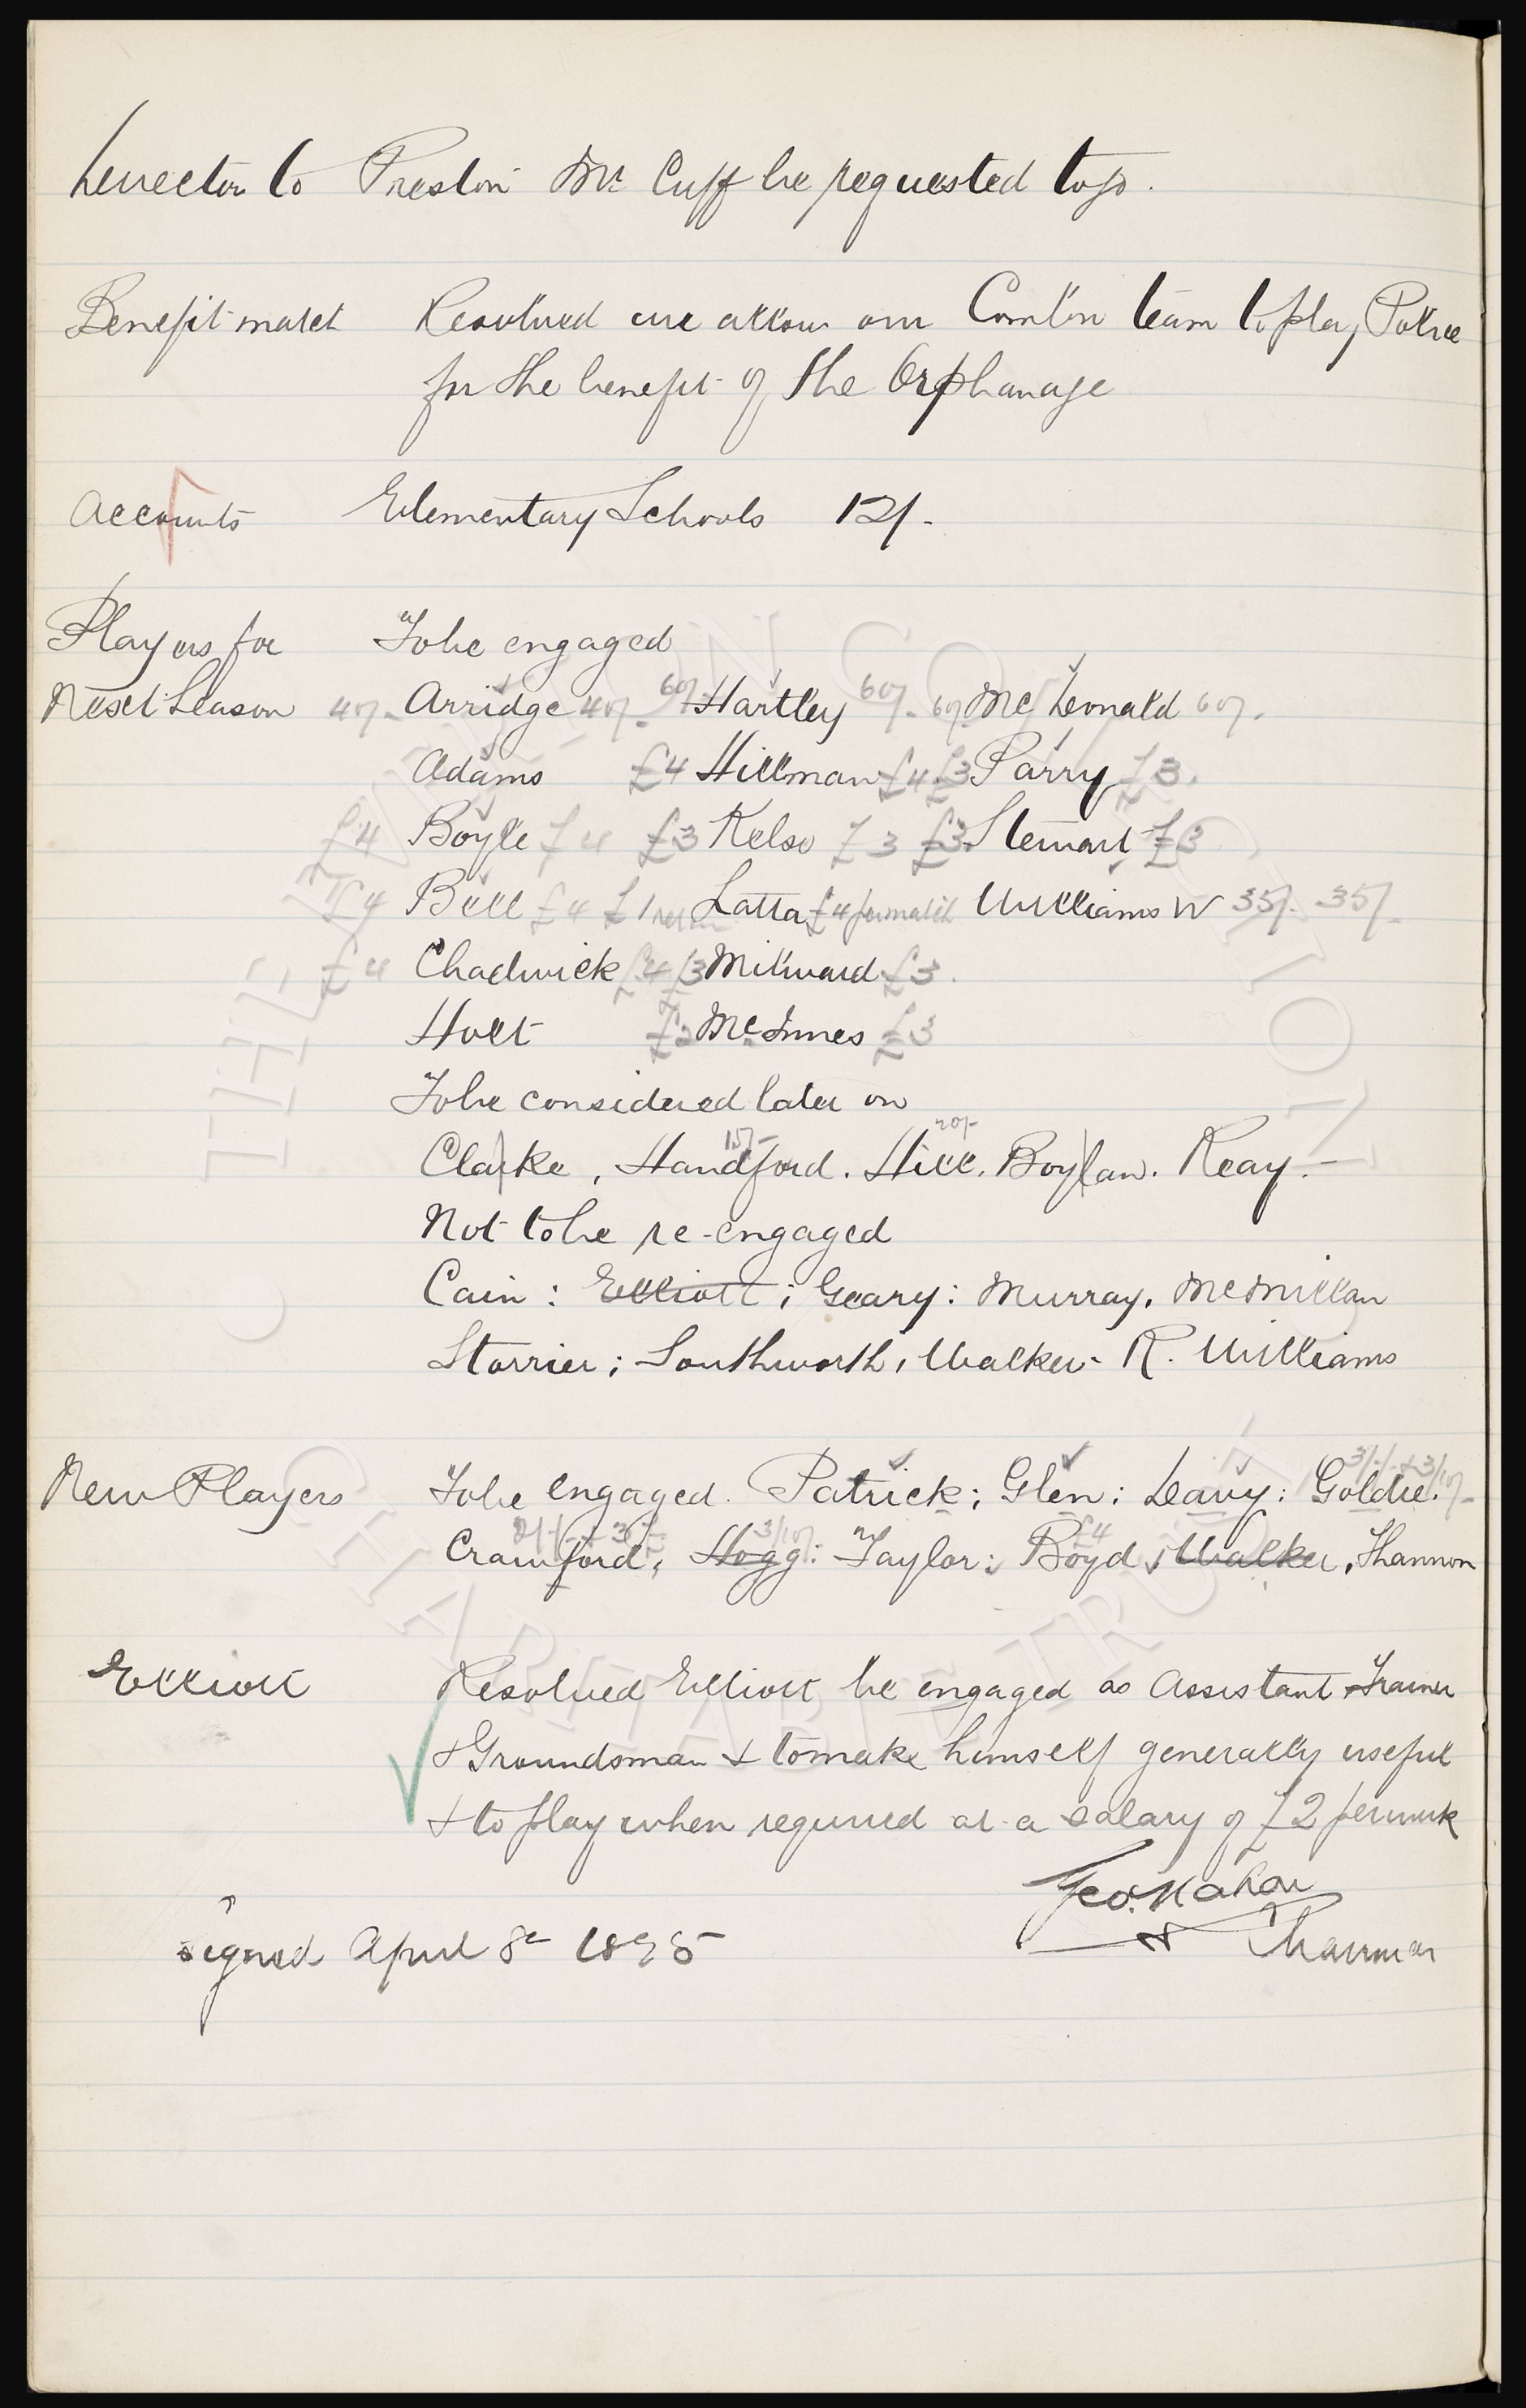 Director to Preston Mr Cuff be requested to go.
Benefit match Resolved we allow our Comb'n team to play Police
for the benefit of the Orphanage
Accounts Elementary Schools 12/-
Players for To be engaged
Next Season 40/- Arridge 40/- 60/- Hartley 60/- 60/- McDonald 60/-
Adams £4 Hillman £4 £3 Parry £3.
£4 Boyle £4 £3 Kelso £3 £3 Stewart £3
£4 Bell £4 £1 Latta £4 per match Williams W 35/- 35/-
£4 Chadwick £4 £3 Milward £3.
Holt £3 McInnes £3
To be considered later on
15/- 20/-
Clarke, Handford. Hill. Boylan. Keay.-
Not to be re-engaged
Cain: Elliott; Geary: Murray, McMillan
Storrier; Southworth, Walker- R. Williams
New Players To be engaged. Patrick; Glen: Leavy: Goldie.
3/10/- £4
Crawford, Hogg: Taylor: Boyd, Walker, Shannon
Elliott Resolved Elliott be engaged as Assistant Trainer
& Groundsman & to make himself generally useful
& to play when required at a salary of £2 per week
Geo. Mahon
Signed April 8th 1895 Chairman
THE EVERTON COLLECTION
CHARITABLE TRUST